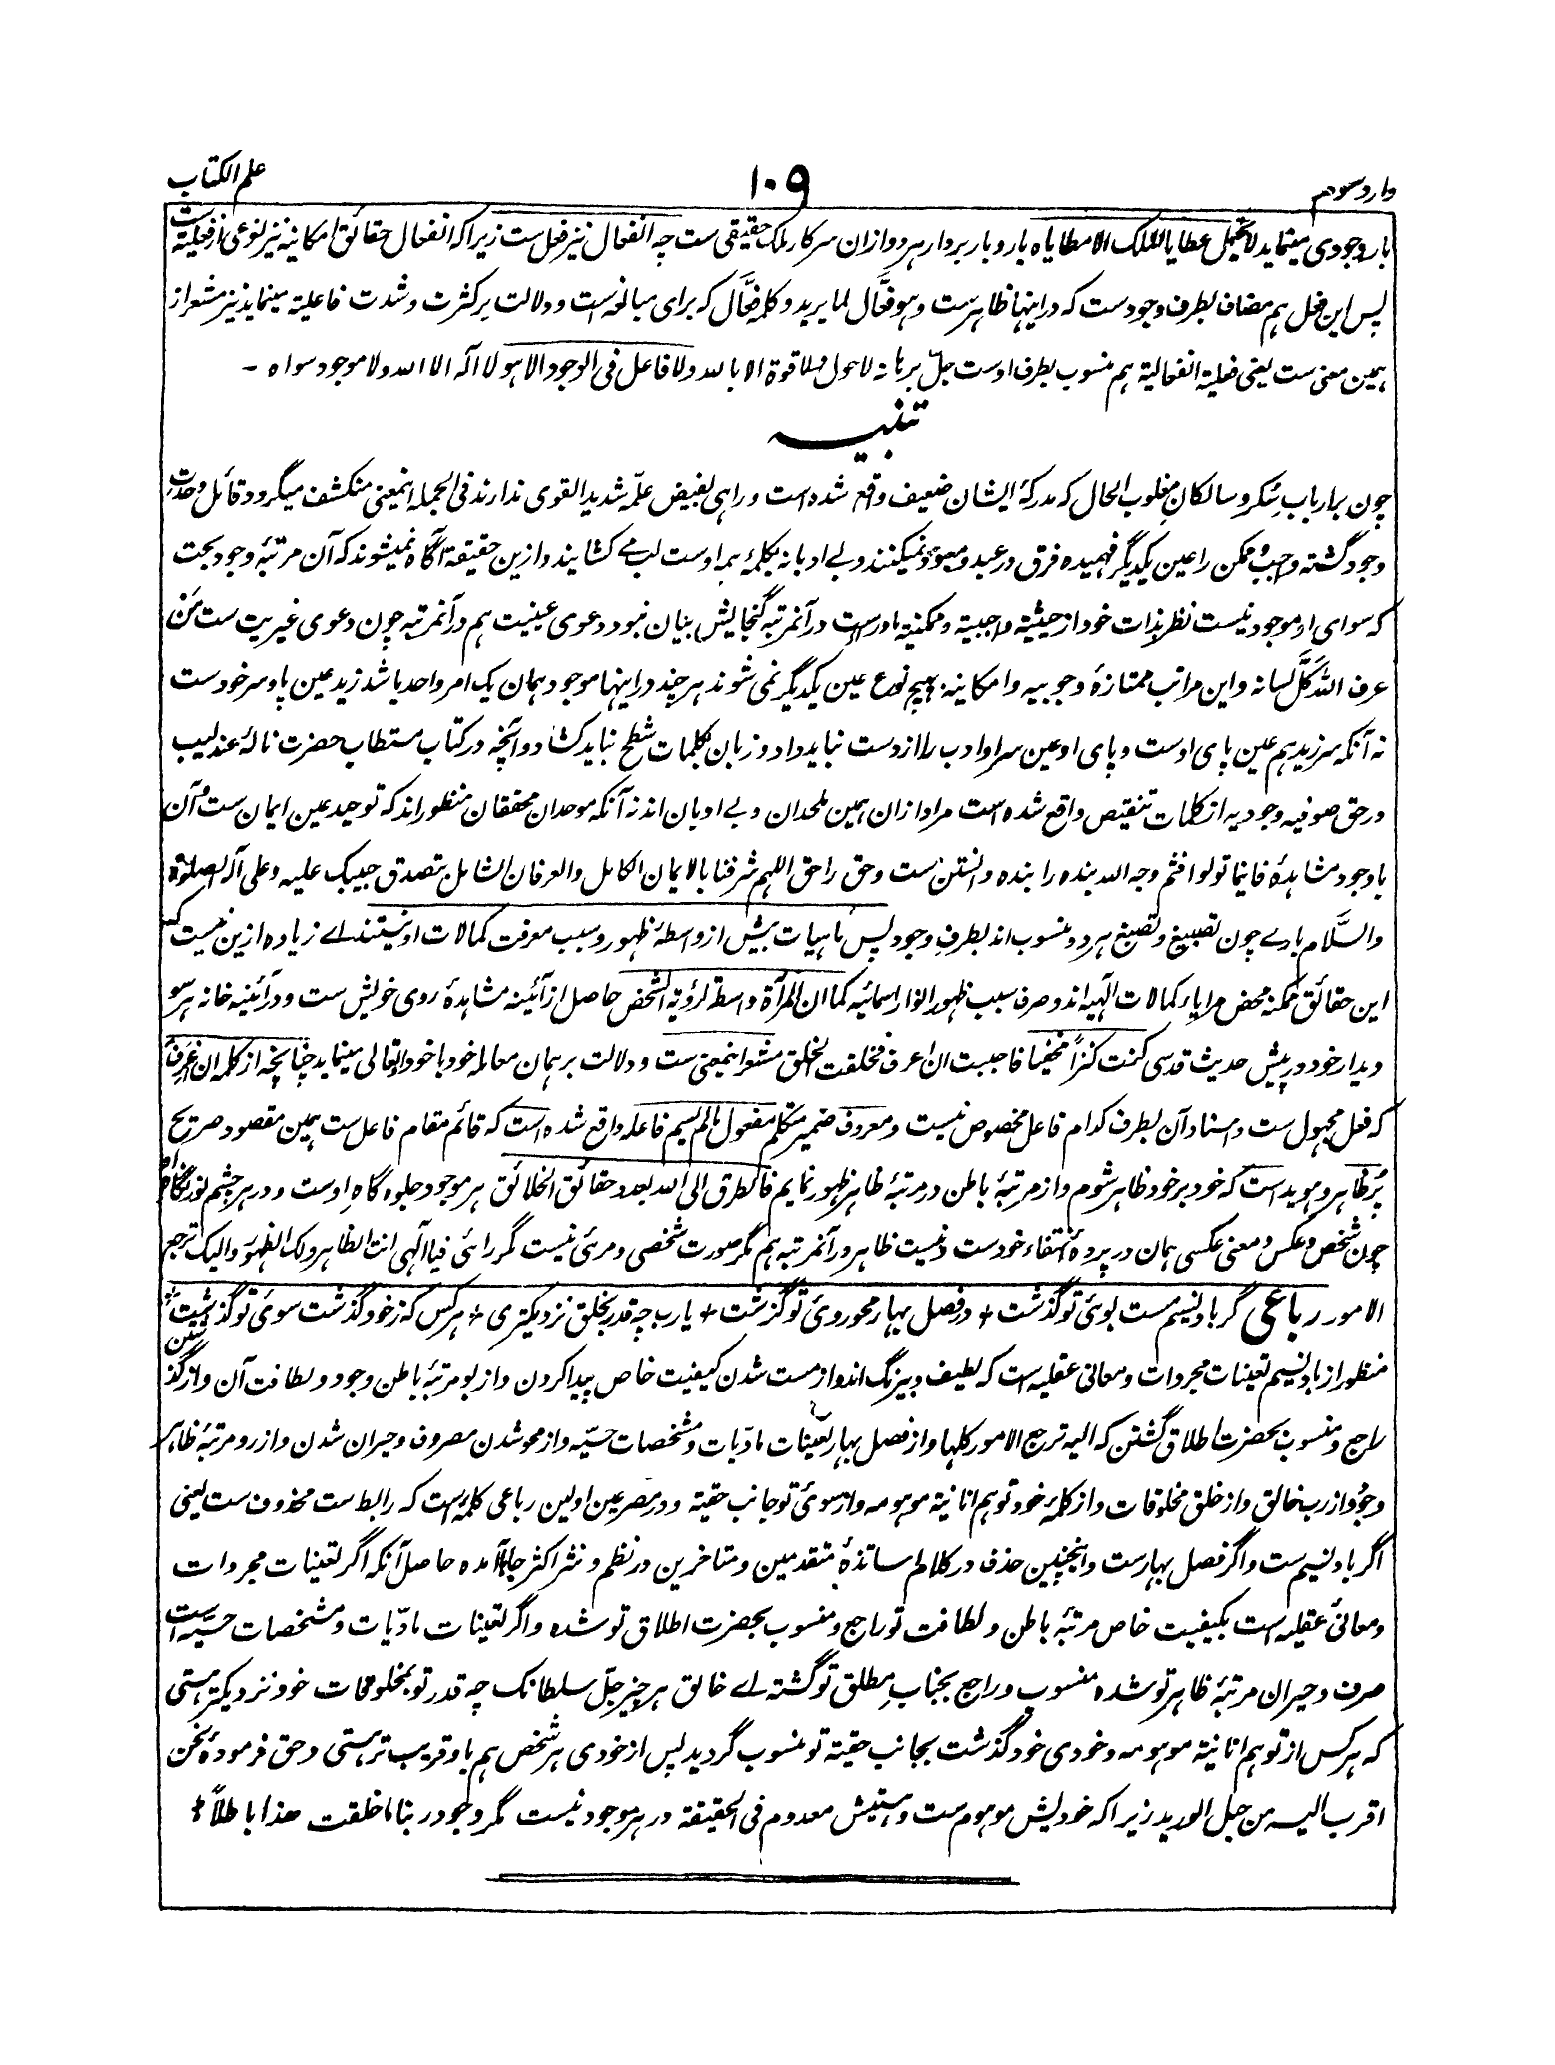 وارد سوم
۱۰۹
علم الکتاب
بار وجودی مینماید لا یحمل عطایا الملک الا مطایاه بار و بار بردار هر دو ازان سرکار ملک حقیقی ست چه انفعال نیز فعل ست زیرا که انفعال حقائق امکانیه نیز نوعی از فعلیة ست
پس این فعل هم مضاف بطرف وجود ست که در اینها ظاهر ست و هو فعَّال لما یرید و کلمه فعَّال که برای مبالغه است و دلالت بر کثرت و شدت فاعلیة مینماید نیز مشعر از
همین معنی ست یعنی فعلیة انفعالیة هم منسوب بطرف اوست جلّ برهانه لا حول ولا قوة الا بالله ولا فاعل فی الوجود الا هو لا اله الا الله ولا موجود سواه ۔
تنبیه
چون بر ارباب سُکر و سالکانِ مغلوب الحال که مدرکهٔ ایشان ضعیف واقع شده است و راهی بفیض علّمه شدید القوی ندارند فی الجمله اینمعنی منکشف میگردد قائل وحدتِ
وجود گشته واجب و ممکن را عین یکدیگر فهمیده فرق در عبد و معبود نمیکنند و بے ادبانه بکلمهٔ همه اوست لب مے کشایند و ازین حقیقة آگاه نمیشوند که آن مرتبهٔ وجود بحت
که سوای او موجود نیست نظر بذات خود از حیثیة واجبیة و ممکنیة ماورا ست در آنمرتبه گنجایش بیان نبود دعوی عینیت هم در آنمرتبه چون دعوی غیریت ست مَن
عرف اللّٰه کَلَّ لسانه و این مراتب ممتازهٔ وجوبیه و امکانیه بهیچ نوع عین یکدیگر نمی شوند هر چند در اینها موجود همان یک امر واحد باشد زید عین پا و سر خود ست
نه آنکه سر زید هم عین پای اوست و پای او عین سر او ادب را از دست نباید داد و زبان بکلمات شطح نباید کشاد و آنچه در کتاب مستطاب حضرت نالهٔ عندلیب
در حق صوفیه وجودیه از کلمات تنقیص واقع شده است مراد ازان همین ملحدان و بے ادبان اند نه آنکه موحدان محققان منظور اند که توحید عین ایمان ست و آن
باوجود مشاهدهٔ فاینما تولوا فثم وجه الله بنده را بنده دانستن ست و حق را حق اللهم شرفنا بالایمان الکامل و العرفان الشامل بتصدق حبیبک علیه و علی آله الصلوة
والسَّلام بارے چون تصبیغ و تصبغ هر دو منسوب اند بطرفِ وجود پس ماهیات بیش از واسطهٔ ظهور و سبب معرفت کمالات او نیستند اے زیاده ازین نیست که
این حقائق ممکنه محض مرایار کمالات آلٰهیه اند و صرف سبب ظهور انوار اسمائیه کما ان المرآة واسطة لرؤیة الشخص حاصل از آئینه مشاهدهٔ روی خویش ست و در آئینه خانه هر سو
دیدار خود در پیش حدیث قدسی کنت کنزاً مخفیا فاحببت ان اعرف فخلقت الخلق مشعر اینمعنی ست و دلالت بر همان معامله خود با خود او تعالی مینماید چنانچه از کلمه ان اعرف
که فعل مجهول ست و اسناد آن بطرف کدام فاعل مخصوص نیست و معروف ضمیر متکلم مفعول مالم یسم فاعله واقع شده است که قائم مقام فاعل ست همین مقصود صریح
پُر ظاهر و هویدا ست که خود بر خود ظاهر شوم و از مرتبهٔ باطن در مرتبهٔ ظاهر ظهور نمایم فالطرق الی الله بعدد حقائق الخلائق هر موجود جلوه گاهِ اوست و در هر چشم نور نگاه او
چون شخص و عکس و معنی عکسی همان در پردهٔ اختفاء خود ست و نیست ظاهر در آنمرتبه هم مگر صورت شخصی و مرئی نیست مگر رائی فیا آلٰهی انت الظاهر و لک الظهور و الیک ترجع
الامور رباعی گر باد نسیم مست بوئی تو گذشت + در فصل بهار محو روئی تو گذشت + یارب چه قدر بخلق نزدیکتری + هر کس که ز خود گذشت سوئی تو گذشت +
منظور از باد نسیم تعینات مجردات و معانی عقلیه است که لطیف و بیرنگ اند و از مست شدن کیفیت خاص پیدا کردن و از بو مرتبهٔ باطن وجود و لطافت آن و از گذشتن
راجع و منسوب بحضرت اطلاق گشتن که الیه ترجع الامور کلها و از فصل بهار تعینات مادّیات و مشخصات حسّیه و از محو شدن مصروف و حیران شدن و از رو مرتبهٔ ظاهر
وجود و از رب خالق و از خلق مخلوقات و از کلمهٔ خود توهم انانیة موهومه و از سوئی تو جانب حقیة و در مصرعین اولین رباعی کلمهٔ است که رابط ست محذوف ست یعنی
اگر باد نسیم ست و اگر فصل بهار ست و اینچنین حذف در کلام اساتذهٔ متقدمین و متاخرین در نظم و نثر اکثر جاها آمده حاصل آنکه اگر تعینات مجردات
و معانئ عقلیه است بکیفیت خاص مرتبهٔ باطن و لطافت تو راجع و منسوب بحضرت اطلاق تو شده و اگر تعینات مادّیات و مشخصات حسّیه است
صرف و حیران مرتبهٔ ظاهر تو شده منسوب و راجع بجنابِ مطلق تو گشته اے خالق هر چیز جلّ سلطانک چه قدر تو بمخلوقات خود نزدیکتر هستی
که هر کس از توهم انانیة موهومه و خودی خود گذشت بجانب حقیة تو منسوب گردید پس از خودی هر شخص هم باو قریب تر هستی و حق فرمودهٔ نحن
اقرب الیه من حبل الورید زیرا که خودیش موهوم ست و هستیش معدوم فی الحقیقة در هر موجود نیست مگر وجود ربنا ما خلقت هذا باطلاً +